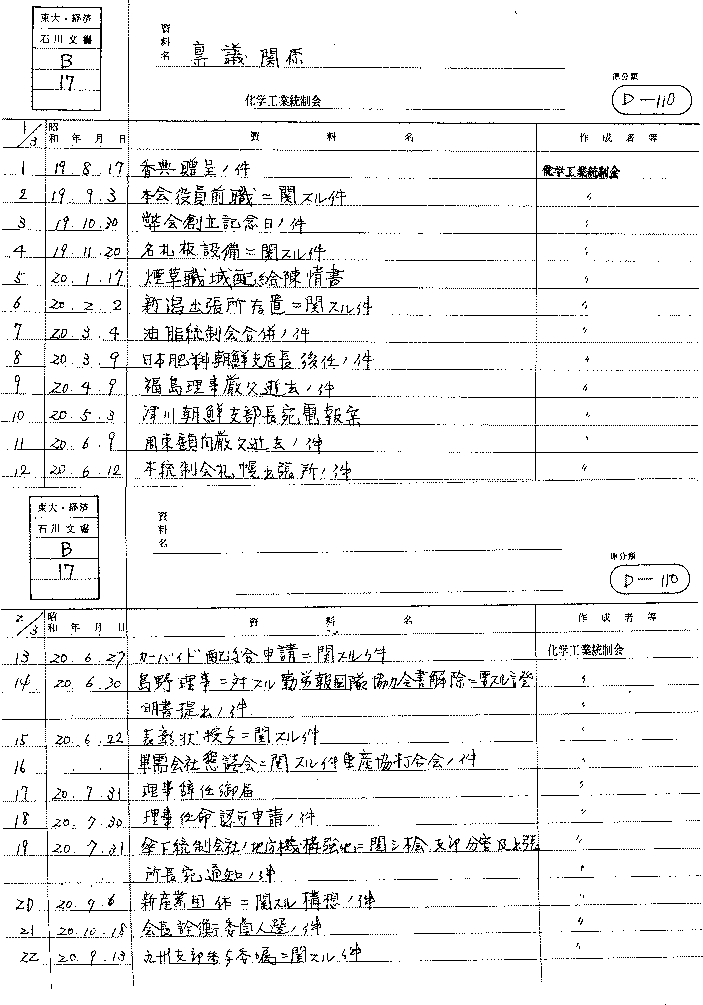 東大・経済
石川文書
B
17
資料名 稟議関係
化学工業統制会
原分類
D-110
1/3 昭和 年 月 日 資料名 作成者等
1 19.8.17 香典贈呈ノ件 化学工業統制会
2 19.9.3 本会役員前職ニ関スル件 〃
3 19.10.30 弊会創立記念日ノ件 〃
4 19.11.20 名札板設備ニ関スル件 〃
5 20.1.17 煙草職域配給陳情書 〃
6 20.2.2 新潟出張所存置ニ関スル件 〃
7 20.3.4 油脂統制会合併ノ件 〃
8 20.3.9 日本肥料朝鮮支店長後任ノ件 〃
9 20.4.9 福島理事厳父逝去ノ件 〃
10 20.5.3 津川朝鮮支部長宛電報案 〃
11 20.6.9 周東顧問厳父逝去ノ件 〃
12 20.6.12 本統制会札幌出張所ノ件 〃
東大・経済
石川文書
B
17
資料名
原分類
D-110
2/3 昭和 年 月 日 資料名 作成者等
13 20.6.27 カーバイド配給申請ニ関スル件 化学工業統制会
14 20.6.30 島野理事ニ対スル勤労報国隊協力令書解除ニ関スル証 〃
明書提出ノ件 〃
15 20.6.22 表彰状授与ニ関スル件 〃
16 . . 軍需会社懇談会ニ関スル件生産協打合会ノ件 〃
17 20.7.31 理事辞任御届 〃
18 20.7.30 理事任命認可申請ノ件 〃
19 20.7.31 傘下統制会社ノ地方機構強化ニ関シ本会支部分室及出張 〃
所長宛通知ノ件 〃
20 20.9.6 新産業団作ニ関スル構想ノ件 〃
21 20.10.18 会長詮衡委員人選ノ件 〃
22 20.9.13 九州支部参与委嘱ニ関スル件 〃